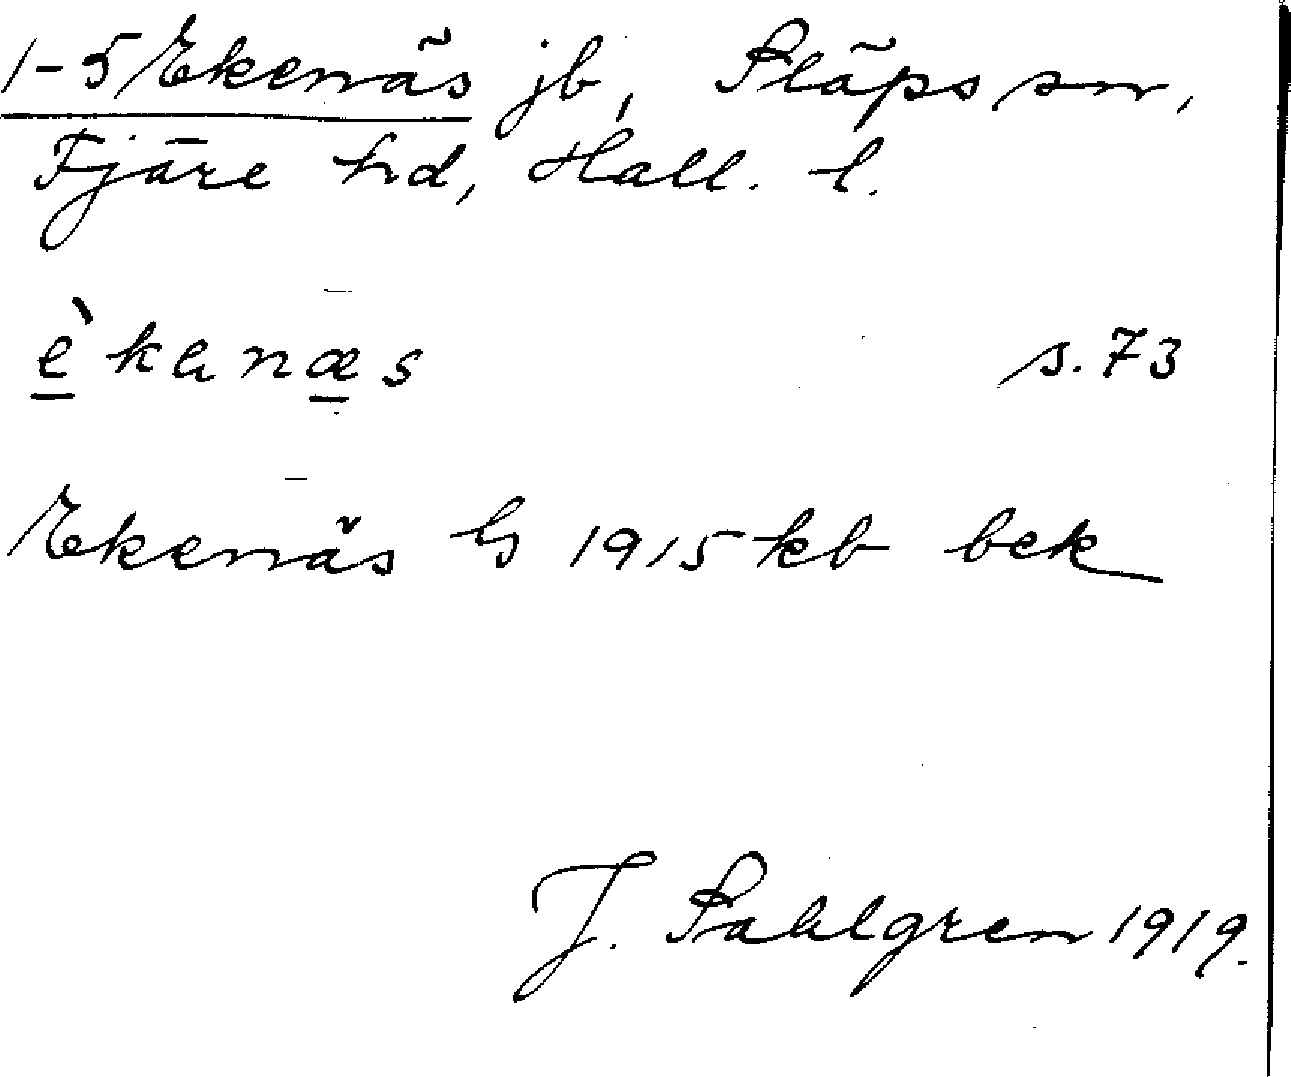 1-5 Ekenäs jb, Släps sn,
Fjäre hd, Hall. l.
è̱kanæ̱s s. 73
Ekenäs G 1915 kb bek
J. Sahlgren 1919.